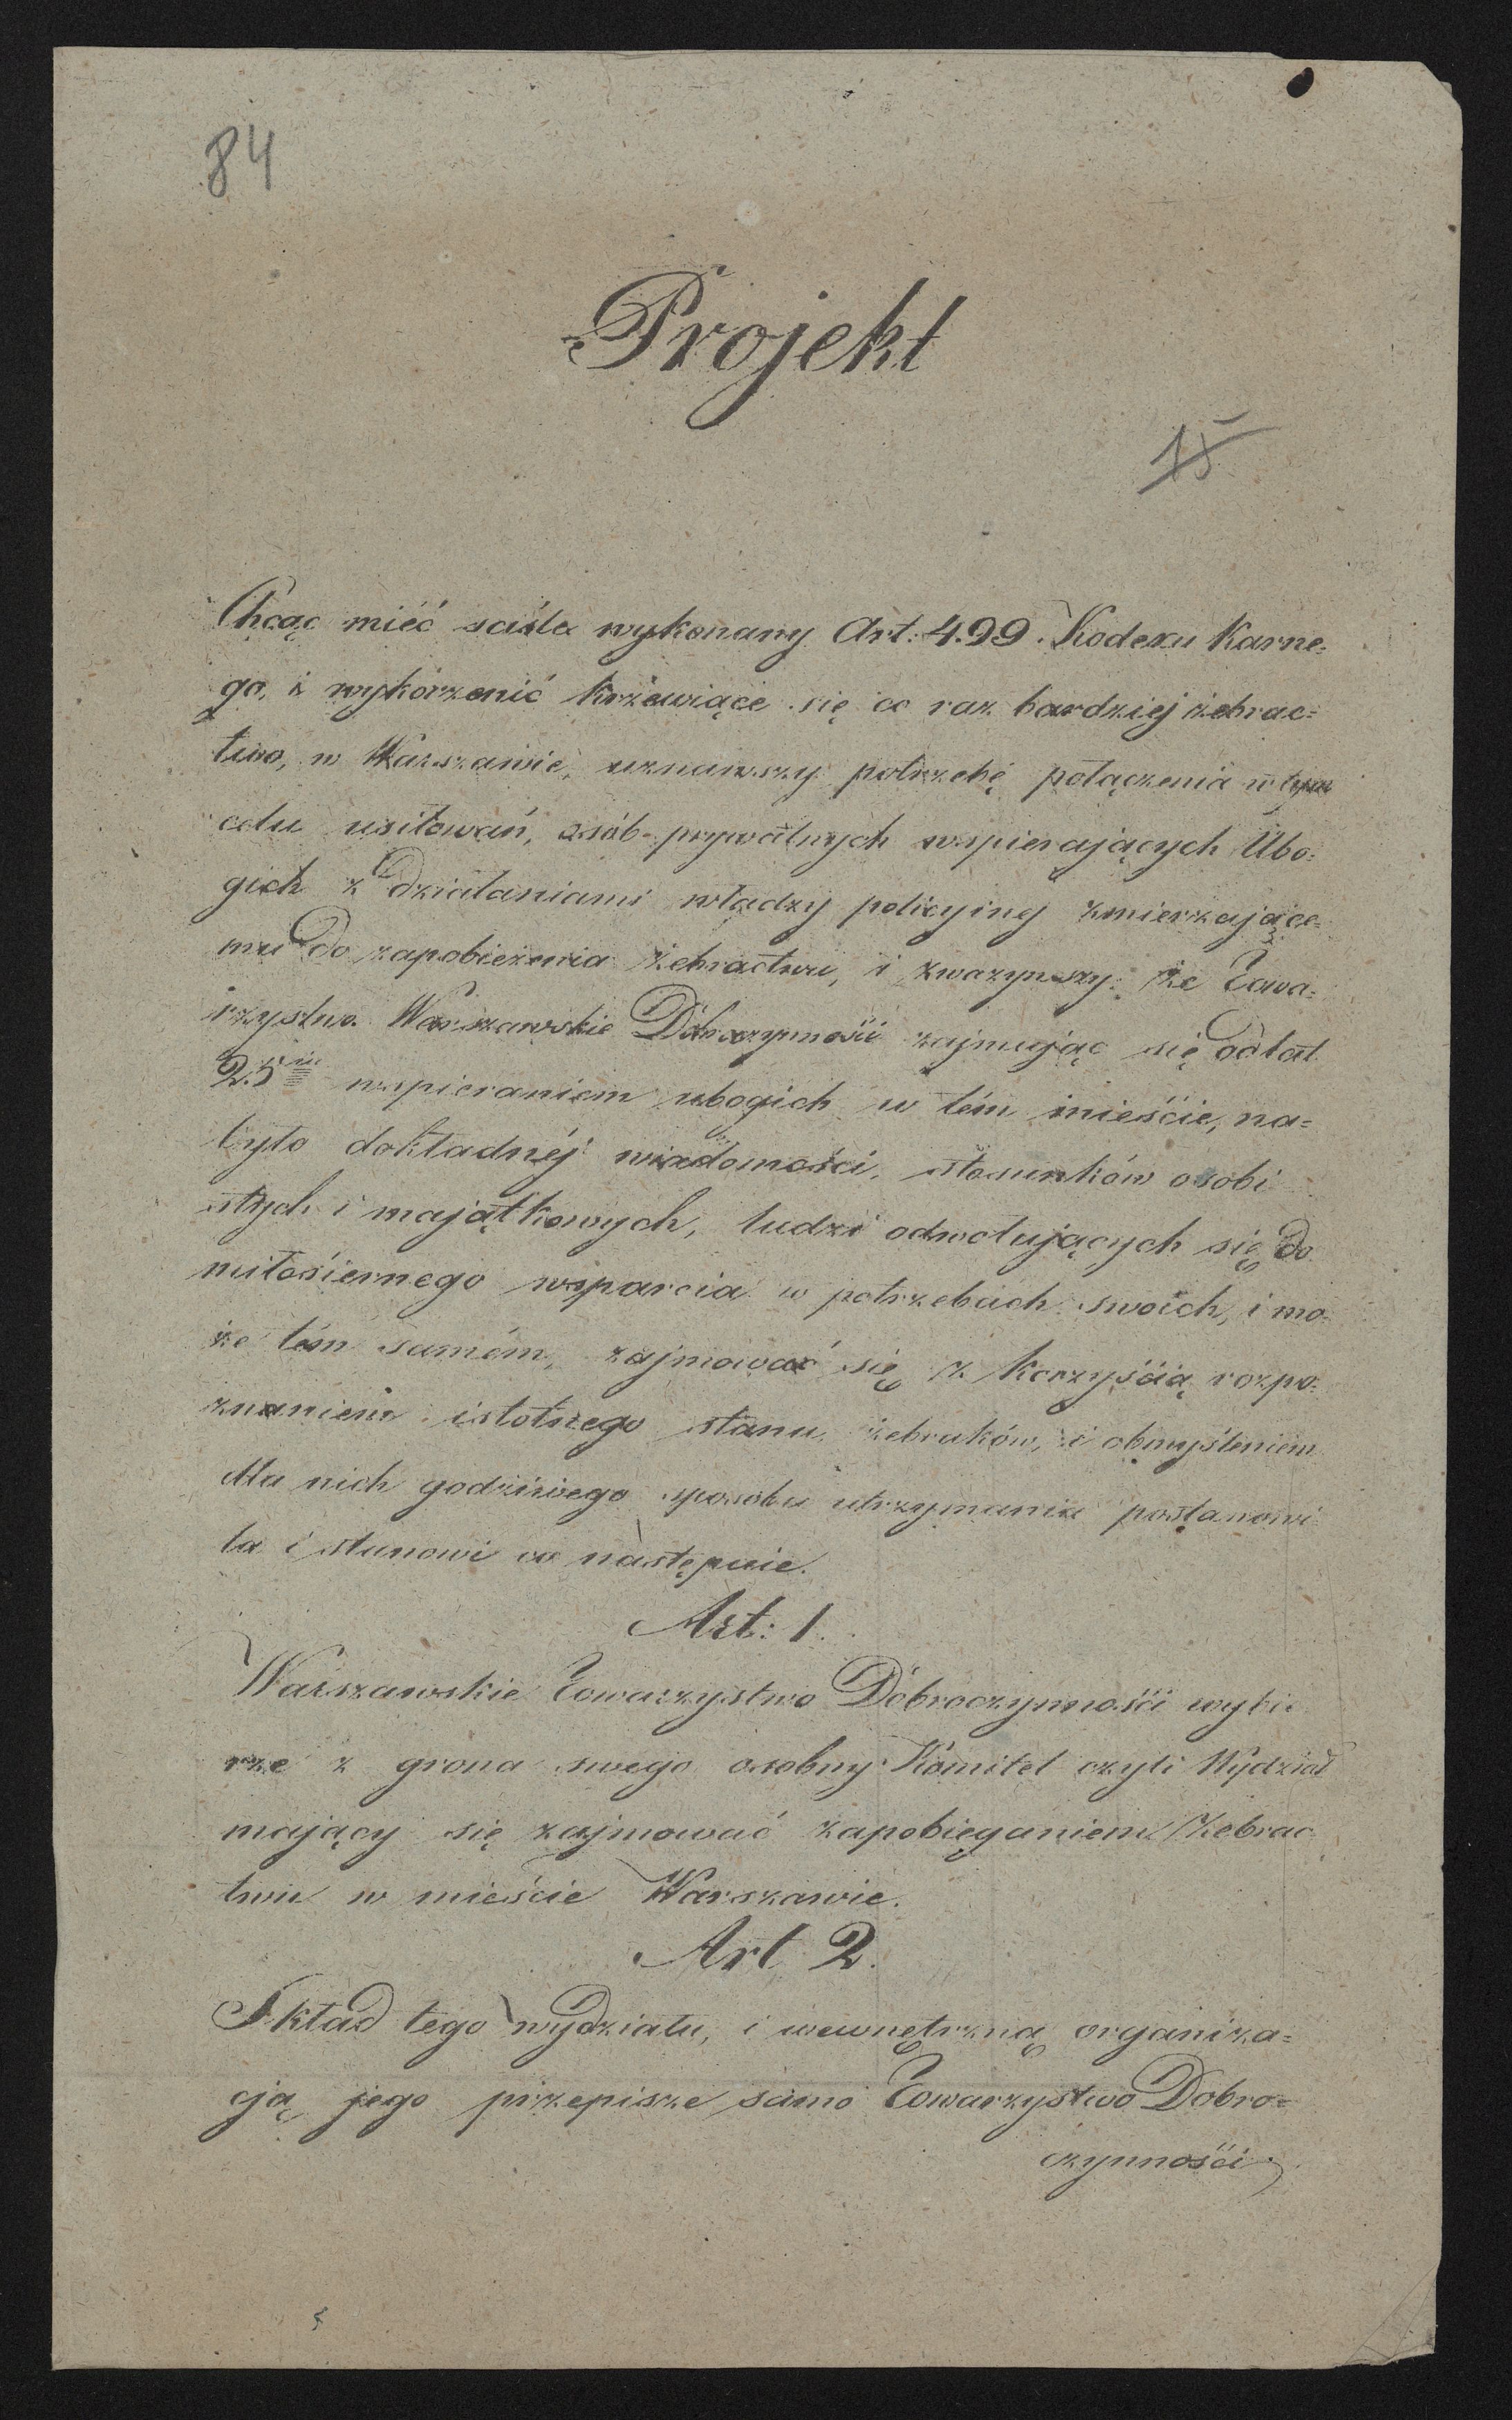 84
Projekt
15
Chcąc mieć ściśle wykonany Art: 499. Kodexu Karne=
go, i wykorzenić krzewiące się co raz bardziej żebrac=
two, w Warszawie, uznawszy potrzebę połączenia w tym
celu usiłowań, osób prywatnych wspierających Ubo=
gich z działaniami władzy policyjnej zmierzające=
mu do zapobieżenia żebractwu, i zważywszy: że Towa=
rzystwo Warszawskie Dobroczynności zajmując się od lat
25ciu wspieraniem ubogich w tém mieście, na=
było dokładnéj wiadomości, stosunków osobi
stych i majątkowych, ludzi odwołujących się do
miłosiernego wsparcia w potrzebach swoich, i mo=
że tém samém, zajmować się z korzyścią rozpo=
znaniem istotnego stanu żebraków, i obmyśleniem
dla nich godziwego sposobu utrzymania postanowi=
ła i stanowi co następuie.
Art: 1.
Warszawskie Towarzystwo Dobroczynności wybie
rze z grona swego osobny Komitet czyli Wydział
mający się zajmować zapobieganiem żebrac
twu w mieście Warszawie.
Art 2.
Skład tego wydziału, i wewnętrzną organiza=
cją jego przepisze samo Towarzystwo Dobro=
czynności